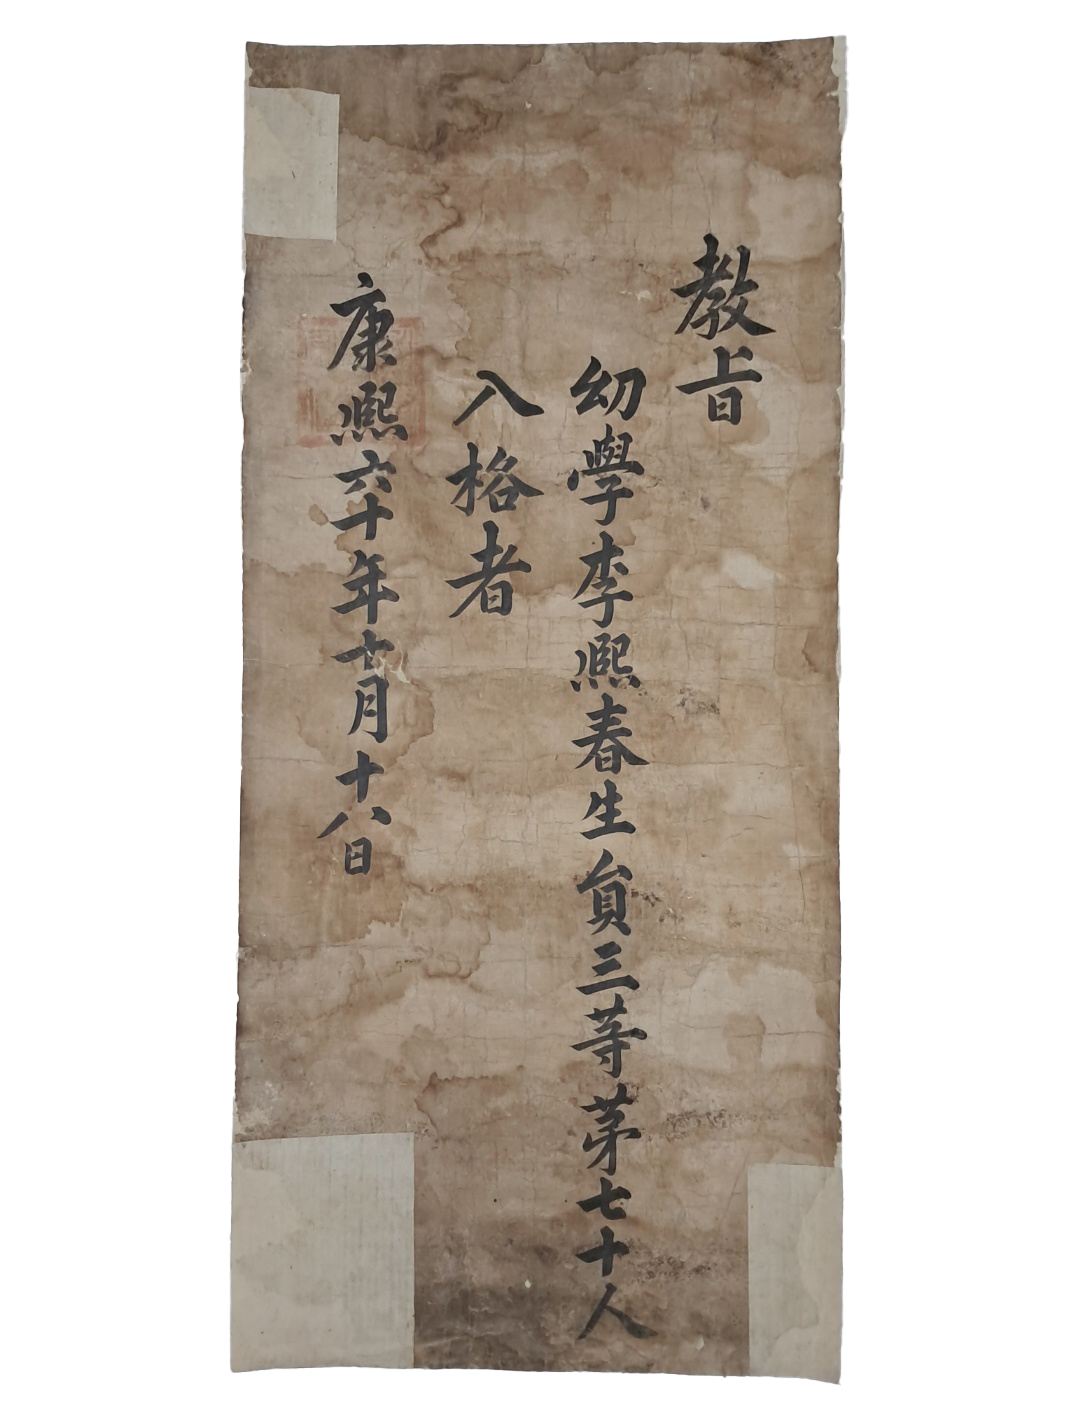 教旨
幼學李熙春生員三等第七十人
入格者
康熙六十年十月十八日